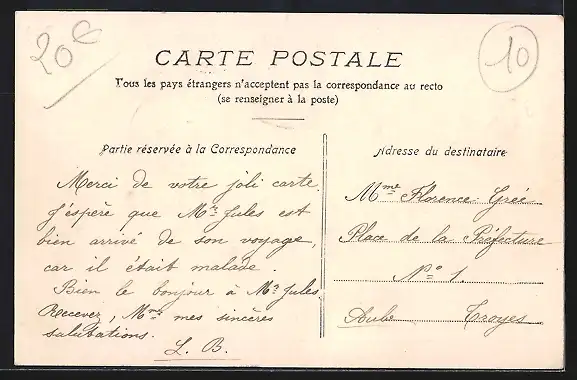 20€
10
CARTE POSTALE
Tous les pays étrangers n'acceptent pas la correspondance au recto
(se renseigner à la poste)
Partie réservée à la Correspondance
Merci de votre joli carte.
J'espère que Mr Jules est
bien arrivé de son voyage,
car il était malade.
Bien le bonjour à Mr Jules
Recevez, Mme mes sincères
salutations.
L. B.
Adresse du destinataire
Mme Florence Grée
Place de la Préfecture
No 1.
Aube Troyes